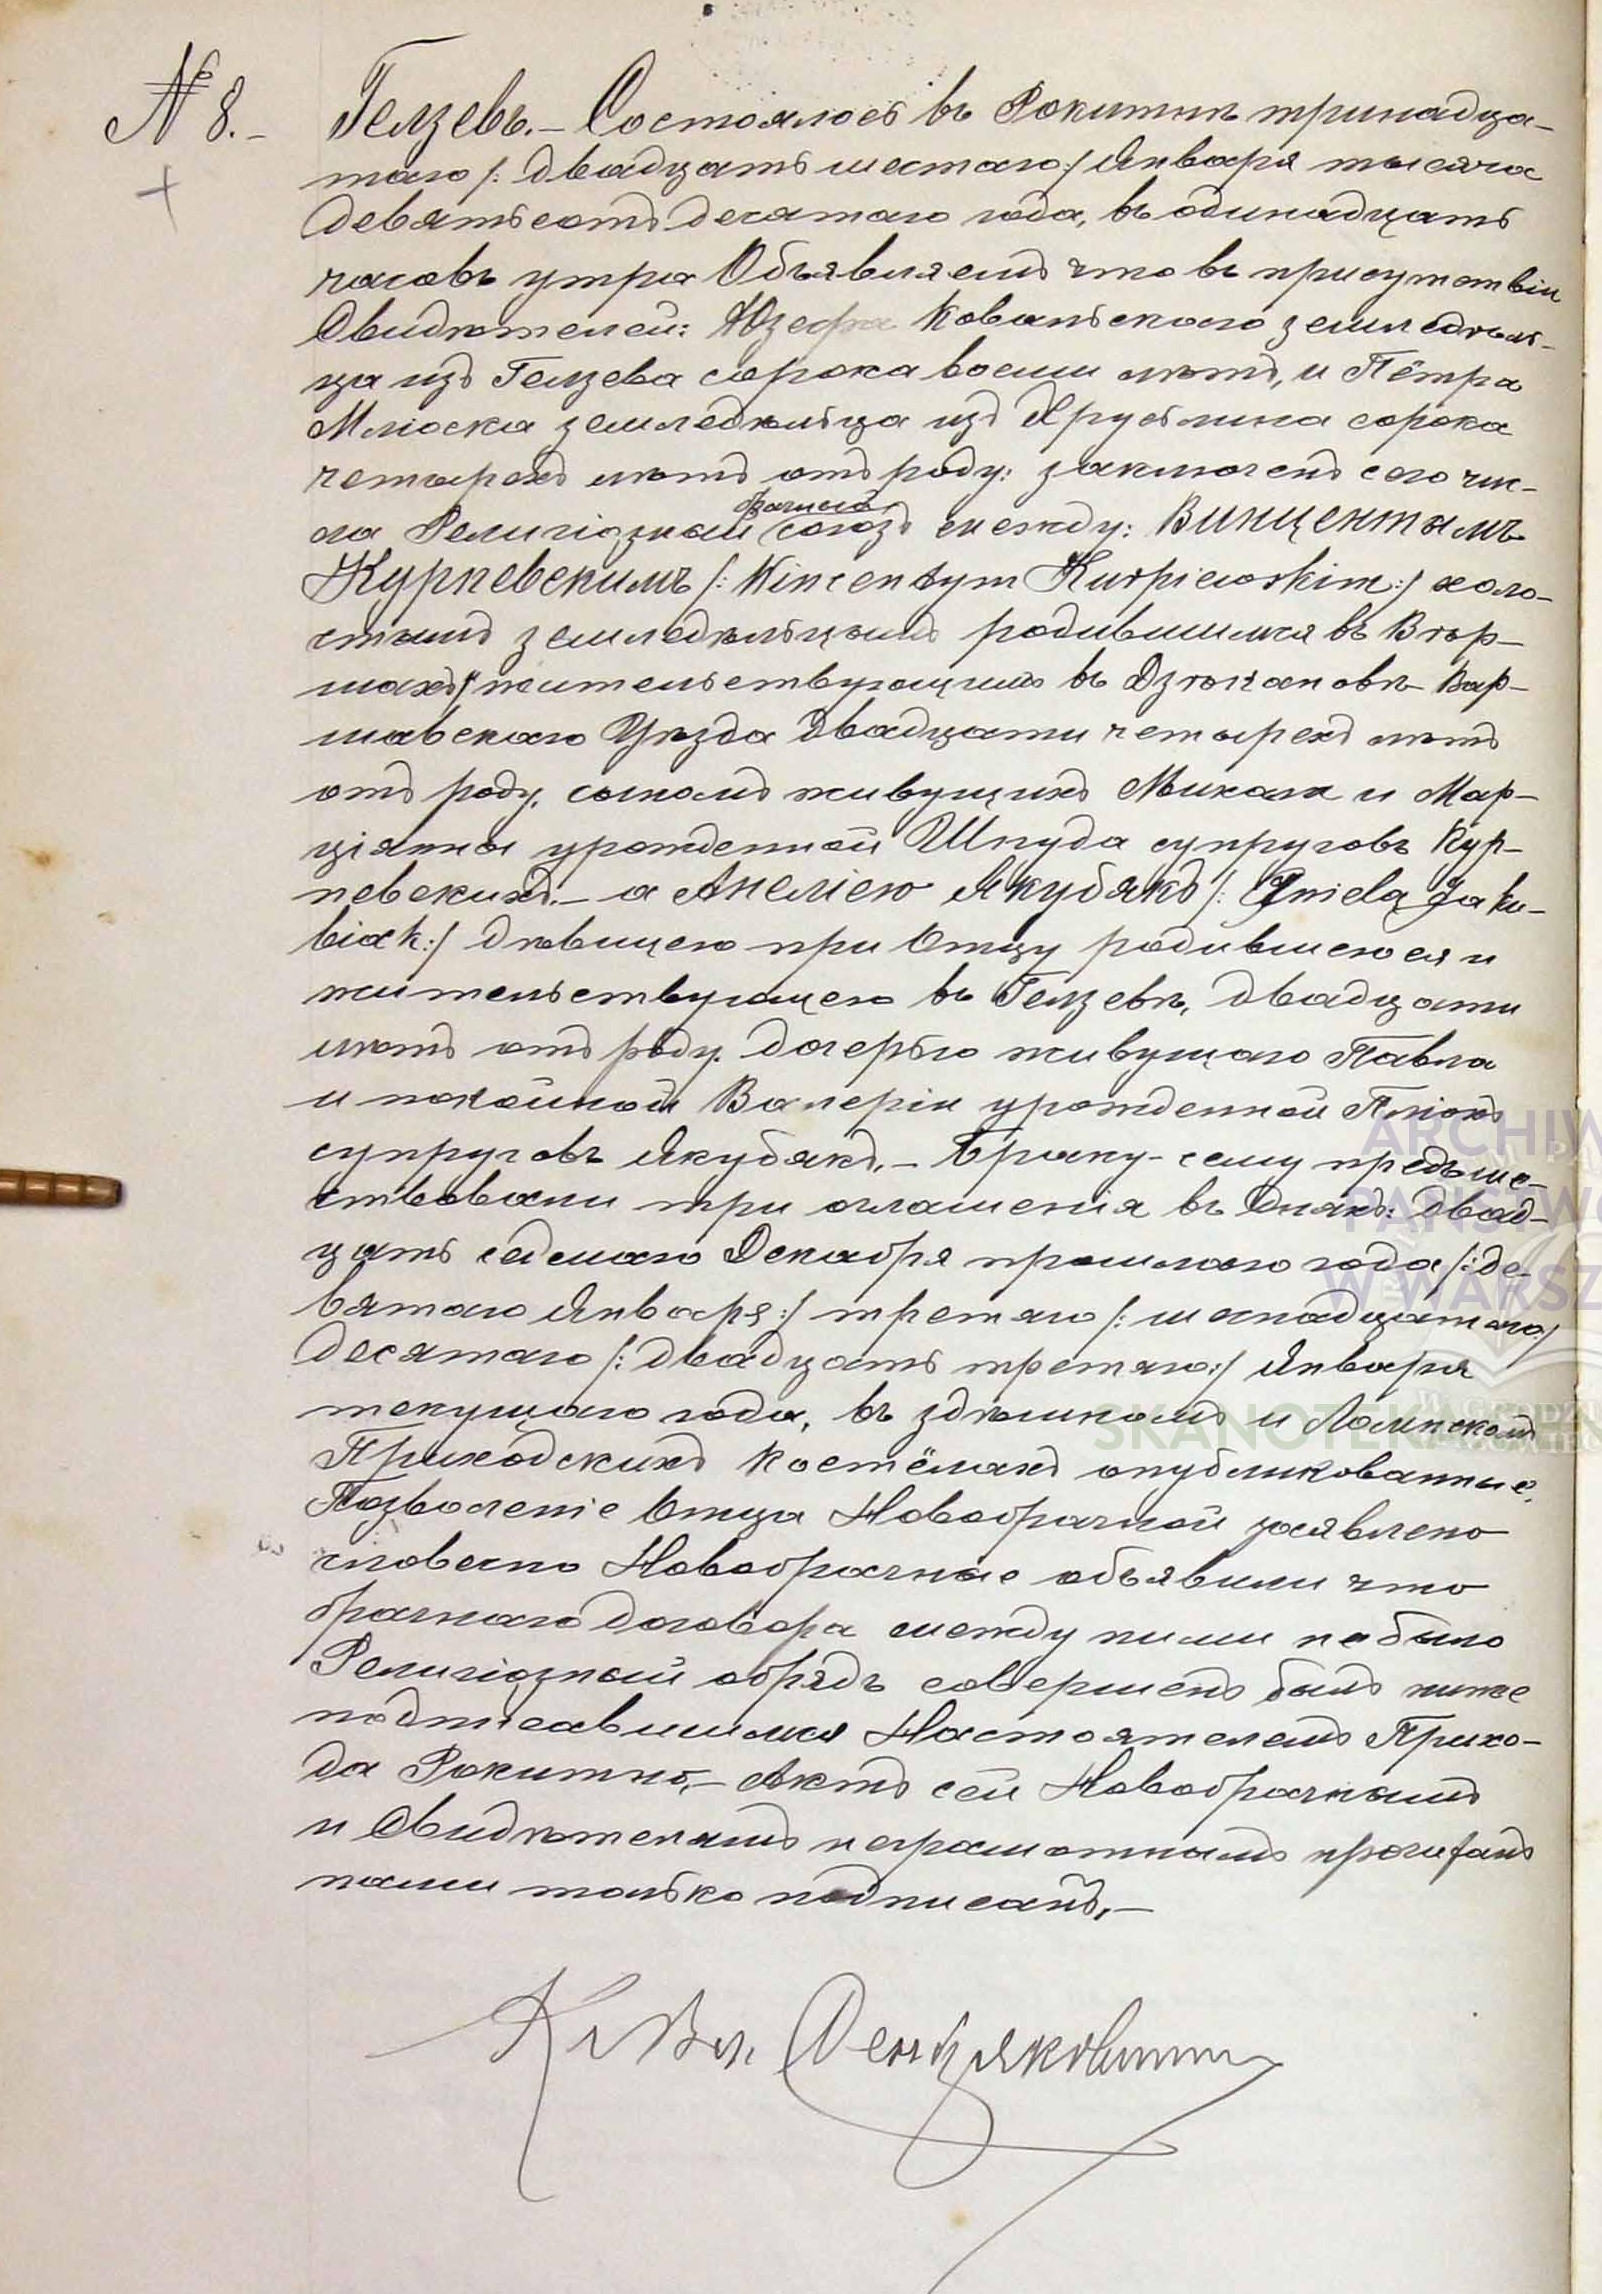 № 8.- Гелзевъ.- Состоялось въ Рокитнѣ тринадца-
таго /: двадцать шестаго :/ Января тысяча
девятьсотъ десятаго года, въ одинадцать
часовъ утра Объявляемъ что въ присутствіи
Свидѣтелей: Юзефа Ковальскаго земледѣль-
ца изъ Гелзева сорока восьми лѣтъ, и Пётра
Млюска земледѣльца изъ Хруслина сорока
четырехъ лѣтъ отъ роду: заключенъ сего чис-
ла Религіозный брачный союзъ между: Винцентымъ
Курпевскимъ /: Wincentym Kurpiewskim :/ холо-
стымъ земледѣльцемъ родившимся въ
жительствующимъ въ Вар-
шавскаго Уѣзда двадцати четырехъ лѣтъ
отъ роду, сыномъ живущихъ и Мар-
ціянны урожденной Шпуда супруговъ Кур-
певскихъ.- а Анеліею Якубякъ /: Anielą Jaku-
biak :/ дѣвицею при Отцу родившеюся и
жительствующею въ Гелзевѣ, двадцати
лѣтъ отъ роду. дочерью живущаго Павла
и покойной Валеріи урожденной
супруговъ Якубякъ.- Браку сему предше-
ствовали три оглашенія въ дняхъ: двад-
цать седьмаго Декабря прошлаго года /: де-
вятаго Января :/ третяго /: шеснадцатаго :/
десятаго /: двадцать третяго :/ Января
текущаго года, въ здѣшномъ и
Приходскихъ Костёлахъ опубликованные.
Позволеніе Отца Новобрачной заявлено
словесно Новобрачные объявили что
брачнаго договора между ними небыло
Религіозный обрядъ совершенъ былъ ниже
подписавшимся Настоятелемъ Прихо-
да Рокитно.- Актъ сей Новобрачнымъ
и Свидѣтелямъ неграмотнымъ прочитанъ
нами только подписанъ.-